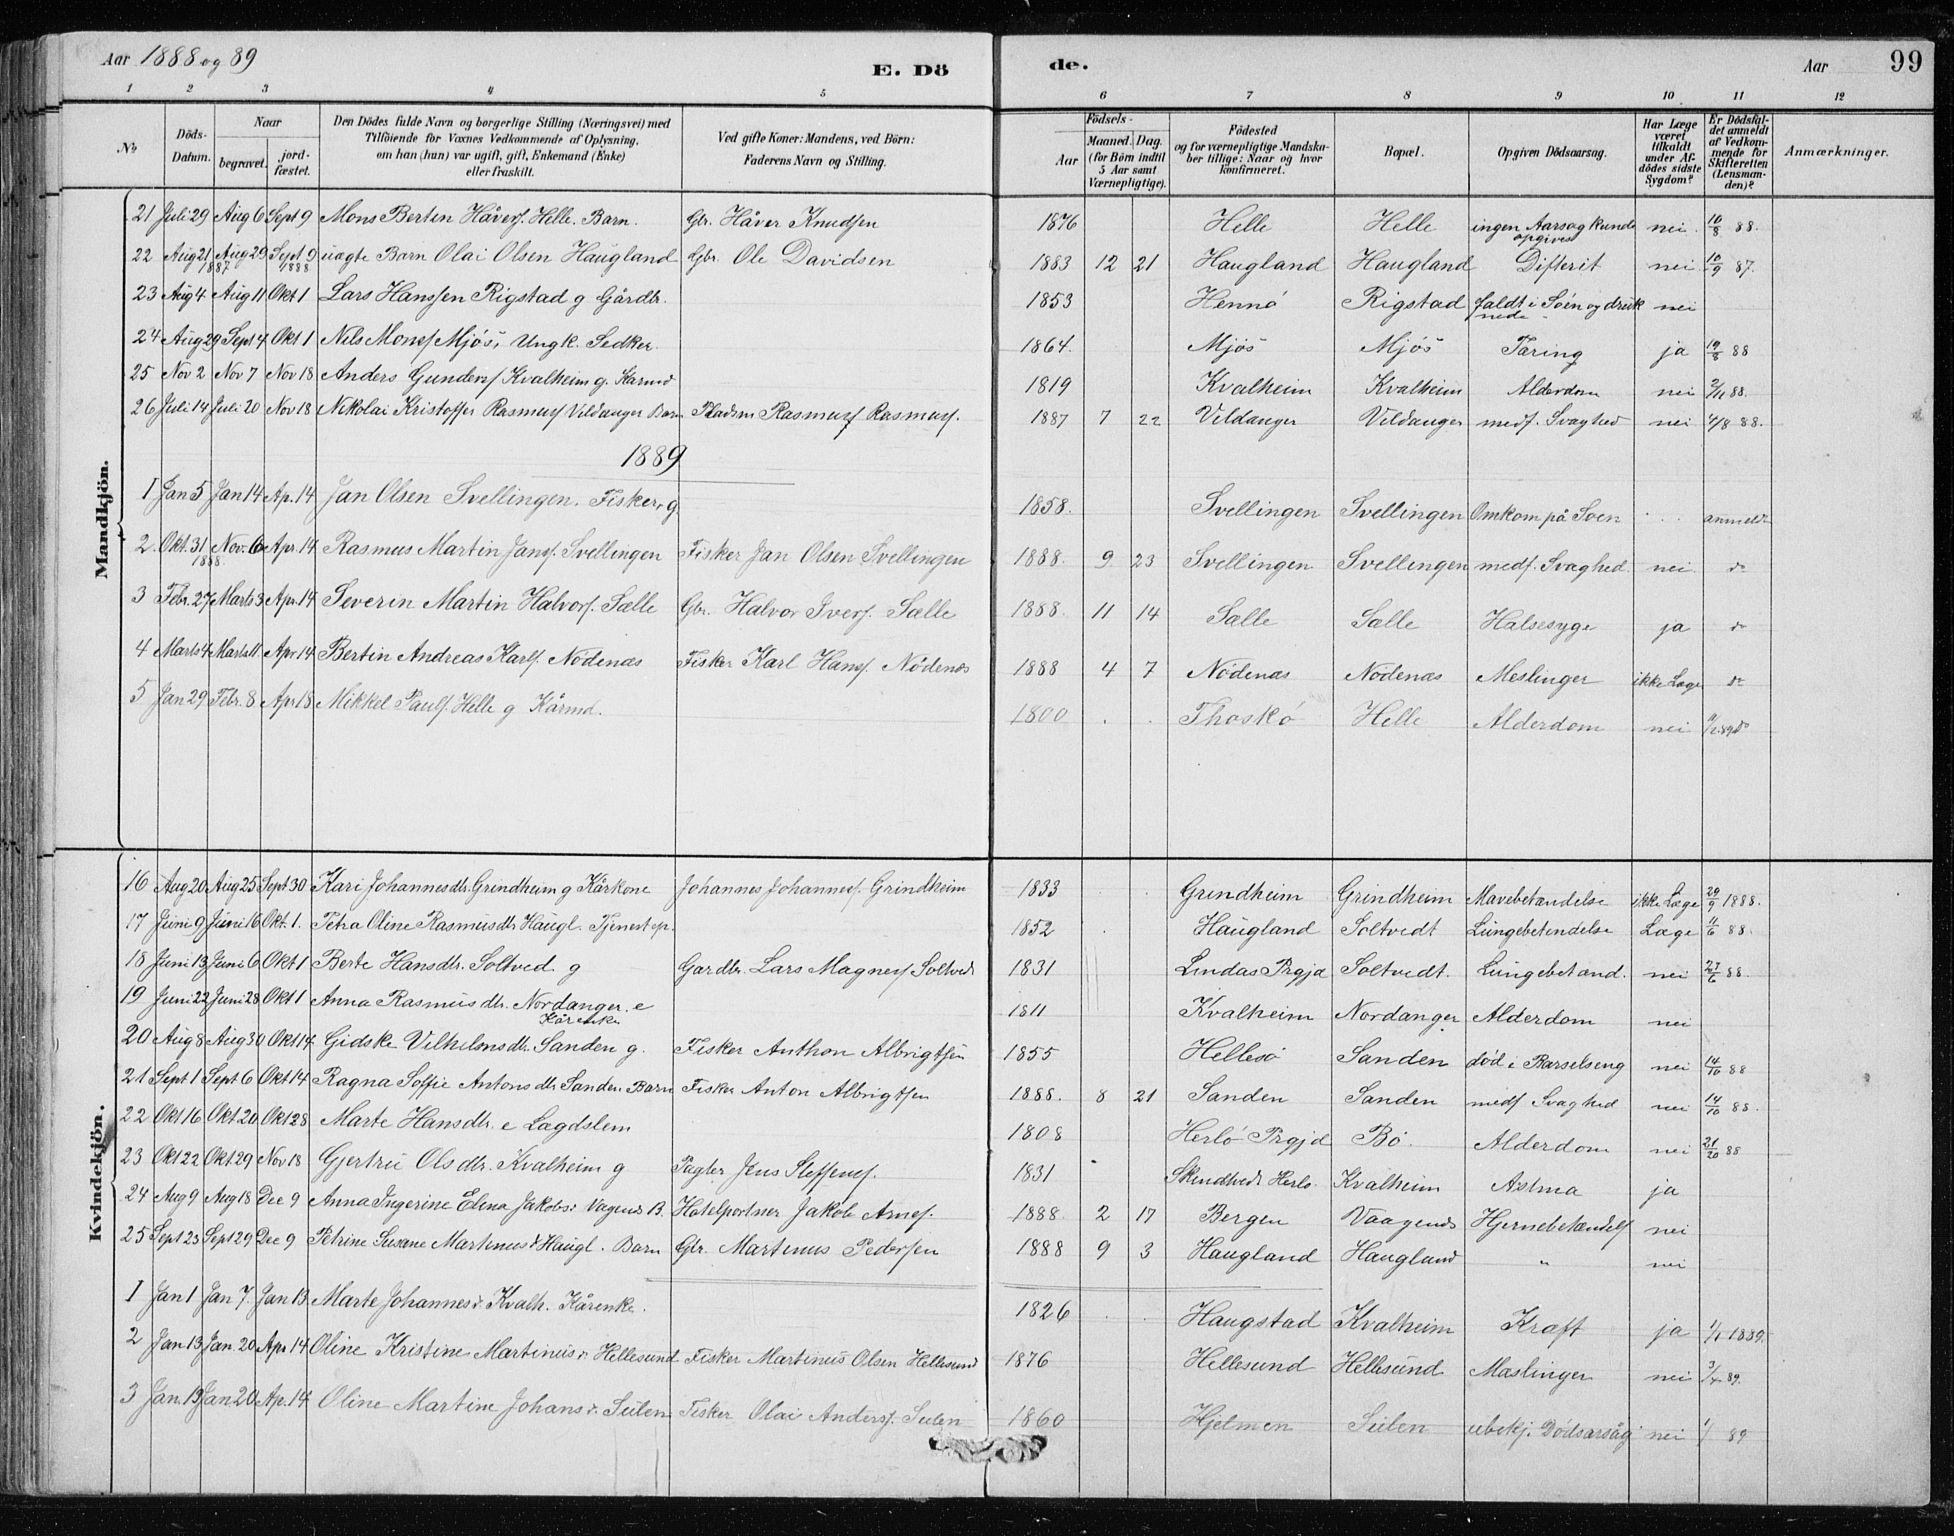 Aar 1888 og 89 E. Dö de. Aar 99
1 2 3 4 5 6 7 8 9 10 11 12
№ Döds-Datum. Naar begravet. jordfæstet. Den Dödes fulde Navn og borgerlige Stilling (Næringsvei) med Tilföiende for Voxnes Vedkommende af Oplysning, om han (hun) var ugift, gift, Enkemand (Enke) eller fraskilt. Ved gifte Koner: Mandens, ved Börn: Faderens Navn og Stilling. Födsels- Aar Maaned. Dag. (for Börn indtil 5 Aar samt Værnepligtige). Födested og for værnepligtige Mandskaber tillige: Naar og hvor konfirmeret. Bopæl. Opgiven Dödsaarsag. Har Læge været tilkaldt under Afdödes sidste Sygdom? Er Dödsfaldet anmeldt af Vedkommende for Skifteretten (Lensmanden)? Anmærkninger.
Mandkjön.
21 Juli 29 Aug 6 Sept 9 Mons Bertin Håvers. Helle. Barn. Gbr. Håver Knudsen 1876 Helle Helle ingen Aarsag kunde opgives nei 10/8 88.
22 Aug 21 1887 Aug 29 Sept 9 1888 uægte Barn Olai Olsen Haugland Gbr. Ole Davidsen 1883 12 21 Haugland Haugland Difterit nei 10/9 87.
23 Aug 4 Aug 11 Okt 1 Lars Hanssen Rigstad g Gårdbr. 1853 Hennö Rigstad faldt i Söen og druknede nei
24 Aug 29 Sept 4 Okt 1 Nils Mons. Mjös, Ungk. 1864. Mjös Mjös Tæring ja 19/8 88
25 Nov 2 Nov 7 Nov 18 Anders Gunders. Kvalheim g. Kårmd 1819 Kvalheim Kvalheim Alderdom nei 2/11 88.
26 Juli 14 Juli 20 Nov 18 Nikolai Kristoffer Rasmus. Vildanger Barn Pladsm Rasmus Rasmus. 1887 7 22 Vildanger Vildanger medf. Svaghed nei 4/8 88.
1889
1 Jan 5 Jan 14 Ap. 14 Jan Olsen Svellingen. Fisker, g 1858. Svellingen Svellingen Omkom på Söen . . . anmeldt
2. Okt. 31 1888. Nov. 6 Apr. 14 Rasmus Martin Jans. Svellingen Fisker Jan Olsen Svellingen 1888. 9 23 Svellingen Svellingen medf. Svaghed. nei do
3 Febr. 27 Marts 3 Apr. 14 Severin Martin Halvors. Sælle Gbr. Halvor Ivers. Sælle 1888. 11 14 Sælle Sælle Halsesyge ja do
4 Marts 4 Marts 11 Apr 14 Bertin Andreas Karls. Nödenæs Fisker Karl Hans. Nödenæs 1888 4 7 Nödenæs Nödenæs Meslinger ikke Læge do
5 Jan 29 Febr. 8 Apr 18 Mikkel Pauls. Helle g Kårmd. 1800 . . Thoskö Helle Alderdom nei
Kvindekjön.
16 Aug 20 Aug 25 Sept 30 Kari Johannesdtr. Grindheim g Kårkone Johannes Johannes. Grindheim 1833 Grindheim Grindheim Mavebetændelse ikke Læge 29/9 1888.
17 Juni 9 Juni 16 Okt. 1. Petra Oline Rasmusdtr. Haugl. Tjenestep. 1852 Haugland Soltvedt Lungebetendelse Læge 11/6 88.
18 Juni 13 Juni 6 Okt 1 Berte Hansdtr. Soltved g Gardbr. Lars Magnes. Soltved 1831 Lindas Prgjd Soltvedt. Lungebetænd. nei 27/6 88.
19 Juni 22 Juni 28 Okt 1 Anna Rasmusdtr. Nordanger. e Kårenke 1811 Kvalheim Nordanger Alderdom nei
20 Aug 8 Aug 30 Okt 14 Gidske Vilhelmsdtr. Sanden g. Fisker Anthon Albrigtsen 1855 Hellesö Sanden död i Barselseng nei 14/10 88
21 Sept 1 Sept 6 Okt 14 Ragna Soffie Antonsdtr Sanden Barn Fisker Anton Albrigtsen 1888. 8 21 Sanden Sanden medf Svaghed nei 14/10 88.
22 Okt 16 Okt 20 Okt 28 Marte Hansdtr. e Lægdslem 1808 Herlö Prgjd Bö. Alderdom nei 21/20 88
23 Okt 22 Okt. 29 Nov 18 Gjertru Olsdtr. Kvalheim g Jens Steffens. 1831 Herlo. Kvalheim Astma ja
24 Aug 9 Aug 18 Dec 9 Anna Ingerine Elena Jakobsd. Vagenes B. Hotelportner Jakob Arnes. 1888. 2 17 Bergen Vaagenes Hjernebetændels nei
25 Sept 23 Sept 29 Dec 9 Petrine Susane Martinusd Haugl. Barn Gbr. Martinus Pedersen 1888 9 3 Haugland Haugland " nei
1 Jan 1 Jan 7. Jan 13 Marte Johannesd. Kvalh. Kårenke. 1826 Haugstad Kvalheim Kræft ja 1/1 1889.
2 Jan 13 Jan. 20 Apr 14 Oline Kristine Martinusd. Hellesund Fisker Martinus Olsen Hellesund 1876 Hellesund Hellesund Mæslinger nei 3/4 89.
3 Jan. 13 Jan 20 Ap. 14 Oline Martine Johansd. Seilen Fisker Olai Anders. Seilen 1860 Hjelmen Seilen ubekj. Dödsårsåg nei 1/ 89